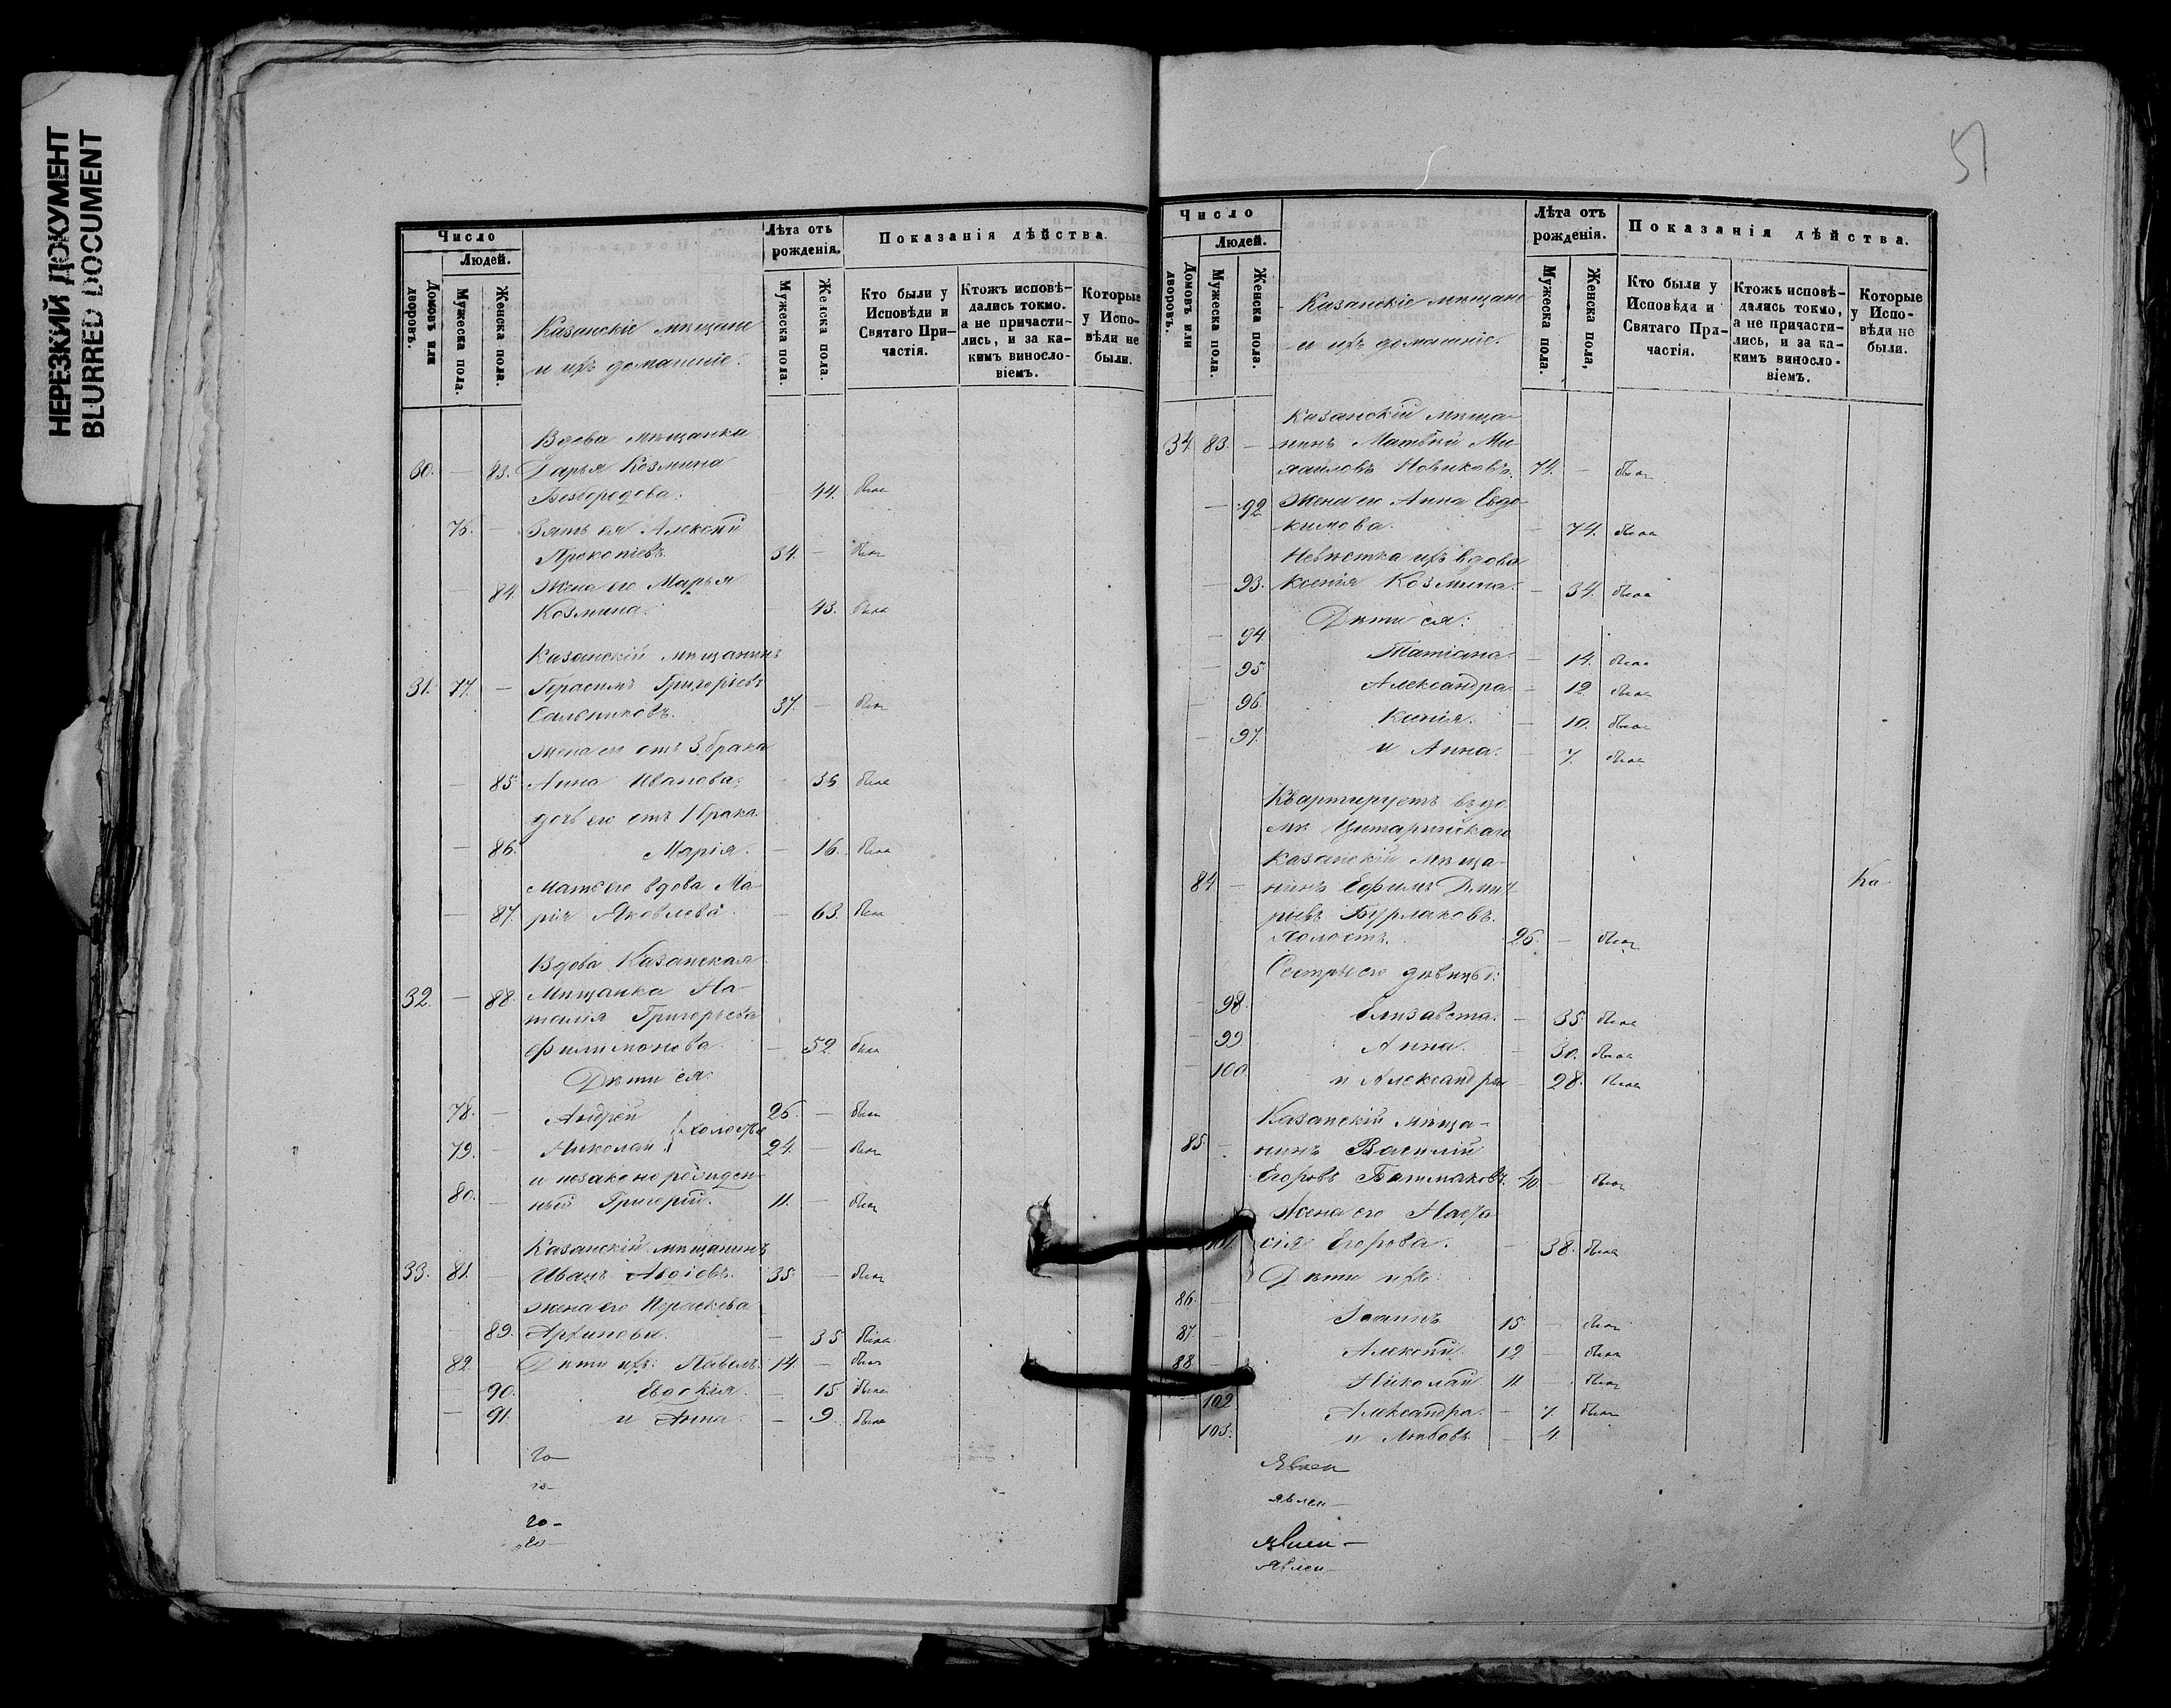 НЕРЕЗКИЙ ДОКУМЕНТ
BLURRED DOCUMENT
Число
Людей.
Домовъ или дворовъ.
Мужеска пола.
Женска пола.
Казанскіе мѣщане
и ихъ домашніе.
Лѣта отъ рожденія.
Мужеска пола.
Женска пола.
Показанія дѣйства.
Кто были у Исповѣди и Святаго При-частія.
Ктожъ исповѣ-дались токмо. а не причасти-лись, и за ка-кимъ виносло-віемъ.
Которые у Испо-вѣди не были.
Вдова мѣщанка
30. — 83. Дарья Козмина
Безбородова. — 44. была
76. — Зять ея Алексѣй
Прокопіевъ. 34. — былъ
— 84. Жена его Марья
Козмина. — 43. была
Казанскій мѣщанинъ
31. 77. — Герасимъ Григорьевъ
Сальниковъ. 37. — былъ
Жена его отъ 3 брака
— 85. Анна Иванова, — 36 была
дочь его отъ 1 брака
— 86. Марія. — 16. была
Мать его вдова Ма-
— 87. рія Яковлева. — 63. была
Вдова Казанская
32. — 88. Мѣщанка На-
талія Григорьева
Филимонова. — 52. была
Дѣти ея:
78. — Андрей 26. — былъ
холосты
79. — Николай 24. — былъ
и незаконорожден-
80. — ный Григорій. 11. — былъ
Казанскій мѣщанинъ
33. 81. — Иванъ Авдіевъ. 35. — былъ
Жена его Параскева
— 89. — 35 была
82. — Дѣти ихъ: Павелъ. 14. — былъ
— 90. Евдокія. — 15 была
— 91. и Анна. — 9. была
го—
го—
го—
го—
51
Число
Людей.
Домовъ или дворовъ.
Мужеска пола.
Женска пола.
Казанскіе мѣщане
и ихъ домашніе.
Лѣта отъ рожденія.
Мужеска пола.
Женска пола,
Показанія дѣйства.
Кто были у Исповѣди и Святаго При-частія.
Ктожъ исповѣ-дались токмо, а не причасти-лись, и за ка-кимъ виносло-віемъ.
Которые у Испо-вѣди не были.
Казанскій мѣща-
34. 83. — нинъ Матвей Ми-
хайловъ Новиковъ. 74. — былъ
— 92. Жена его Анна Евдо-
кимова. — 74. была
Невѣстка ихъ вдова
— 93. Ксенія Козмина. — 34. была
Дѣти ея:
— 94. Татіана. — 14. была
— 95. Александра. — 12. была
— 96. Ксенія. — 10. была
— 97. и Анна. — 7. была
Квартируетъ въ до
мѣ
Казанскій мѣща-
84 — нинъ Ефимъ Дмит
ріевъ Бурлаковъ. Ка-
холостъ. 26. — былъ
Сестры его дѣвицы:
— 98. Елизавета. — 35. была
— 99. Анна. — 30. была
— 100. и Александра — 28. была
Казанскій мѣща-
85 — нинъ Василій
Егоровъ Башмаковъ. 40. — былъ
Жена его Наста
101. сія Егорова. — 38. была
Дѣти ихъ:
86. — Іоаннъ 15. — былъ
87. — Алексѣй. 12 — былъ
88 — Николай. 11 — былъ
102. Александра. — 7. была
103. и Любовь — 4.
Явлен
явлен—
явлен—
явлен—